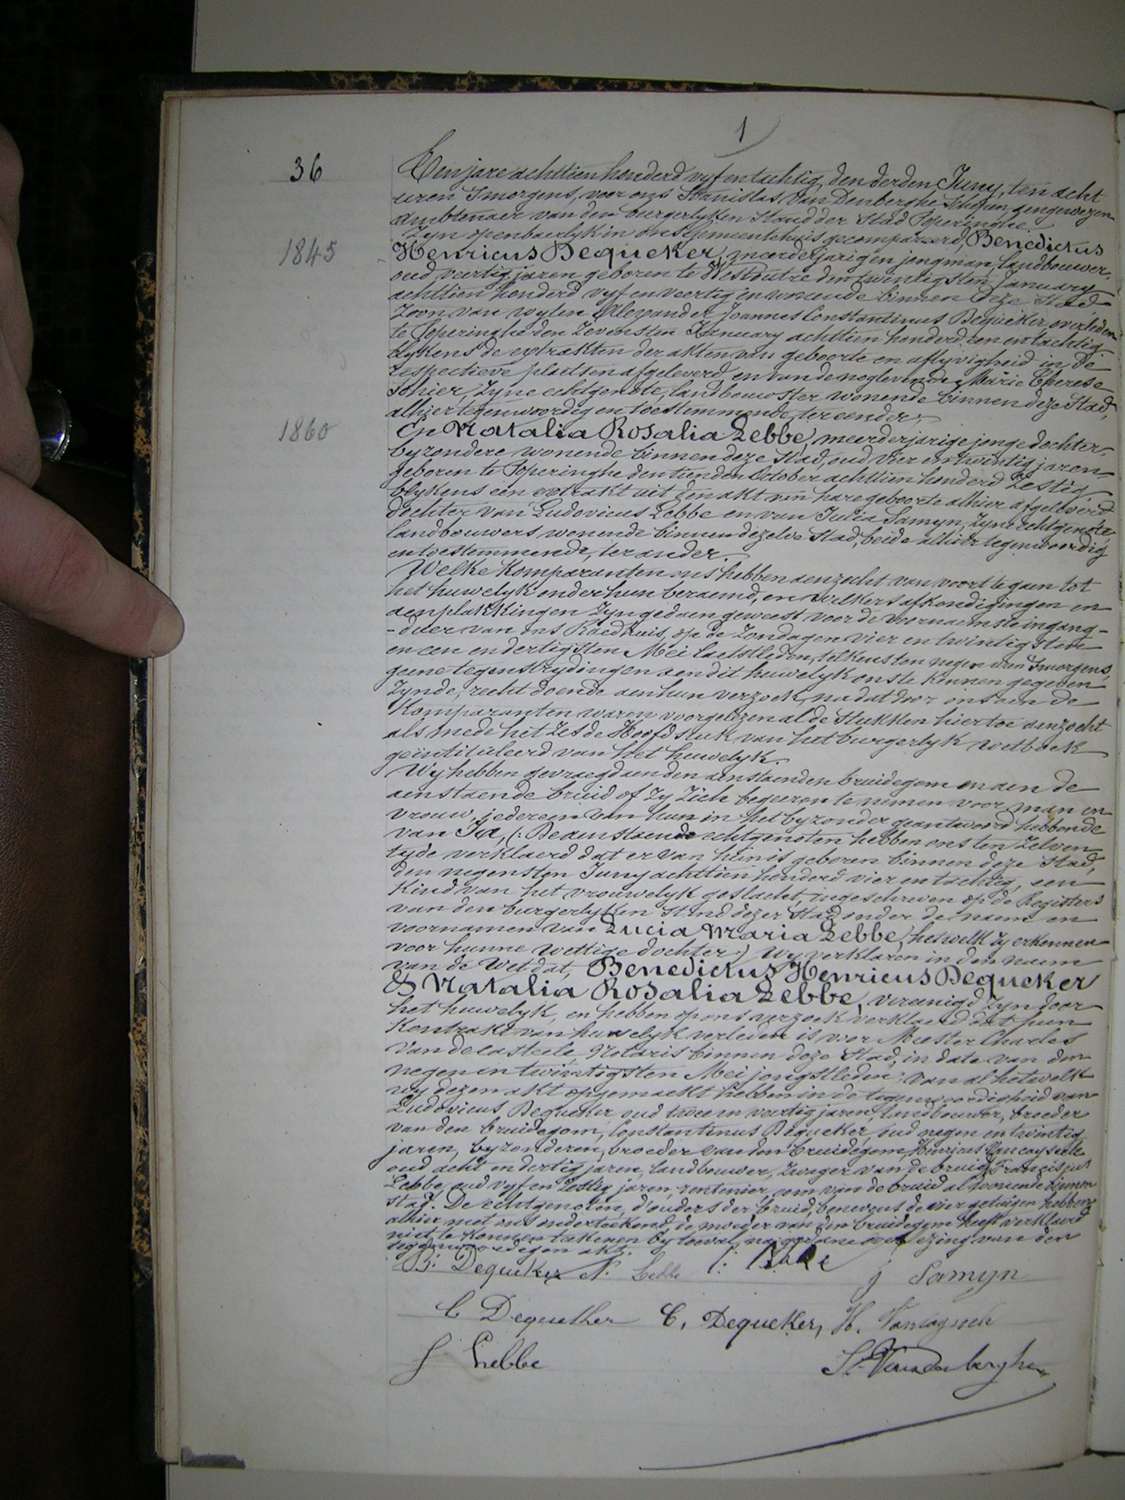 1
36
Een jare achttien honderd vyf en tachtig, den derden Juny, ten acht
uren Smorgens, voor ons Stanislas Van Denberghe Schepen gengewezen
ambtenaer van den burgerlyken Stand der Stad Poperinghe
Zyn openbaerlyk in ons gemeentehuis gecompareerd, Benedictus
1845
Henricus Dequeker, meerderjarigen jongman, landbouwer,
oud veertig jaren geboren te Westoutre den twintigsten January
achttien honderd vyf en veertig en wonende binnen deze Stad
Zoon van wylen Alexander Joannes Constantinus Dequeker overleden
te Poperinghe den Zevensten January achttien honderd een en tachtig
blykens de extrakten der akten van geboorte en aflyvigheid in de
respectieve plaetsen afgeleverd en van de noglevende Marie Therese
Sohier, Zyne echtgenote, landbouwster wonende binnen deze Stad,
alhier tegenwoordig en toestemmende, ter eender;
1860
En Natalia Rosalia Lebbe, meerderjarige jonge dochter,
byzondere wonende binnen deze Stad, oud vier en twintig jaren
geboren te Poperinghe den tienden October achttien honderd Zestig
blykens een extrakt uit den akt van hare geboorte alhier afgeleverd
dochter van Ludovicus Lebbe en van Julia Samyn, Zyne echtgenote
landbouwers wonende binnen dezelve Stad, beide alhier tegenwoordig
en toestemmende, ter ander.
Welke komparanten ons hebben aenzocht van voort te gaen tot
het huwelyk onder hun beraemd, en welkers afkondigingen en
aenplakkingen Zyn gedaen geweest voor de voornaemste ingang-
-deur van ons Raedhuis, op de Zondagen vier en twintigsten
en een en dertigsten Mei laetstleden, telkens ten negen uren Smorgens,
geene tegenstrydingen aen dit huwelyk ons te kennen gegeven
Zynde, recht doende aen hun verzoek, na dat door ons aen de
Komparanten waren voorgelezen al de stukken hier toe aenzocht
als mede het Zesde Hoofdstuk van het burgerlyk wetboek
geintituleerd van het huwelyk.
Wy hebben gevraegd aen den aenstaenden bruidegom en aen de
aenstaende bruid of Zy Zich begeeren te nemen voor man en
vrouw, iedereen van hun in het byzonder geantwoord hebbende
van Ja, (: De aenstaende echtgenoten hebben ons ten Zelven
tyde verklaerd dat er van hun is geboren binnen deze Stad,
den negensten Juny achttien honderd vier en tachtig, een
Kind van het vrouwelyk geslacht, ingeschreven op de Registers
van den burgerlyken Stand dezer Stad onder de naem en
voornamen van Lucia Maria Lebbe, hetwelk Zy erkennen
voor hunne wettige dochter) Wy verklaren in den naem
van de Wet dat, Benedictus Henricus Dequeker
& Natalia Rosalia Lebbe, vereenigd Zyn door
het huwelyk, en hebben op ons verzoek verklaerd dat hun
Kontrakt van huwelyk verleden is voor Meester Charles
Van de Casteele, Notaris binnen deze Stad, in date van den
negen en twintigsten Mei jongstleden: van al hetwelk
wy dezen akt opgemaekt hebben in de tegenwoordigheid van
Ludovicus Dequeker oud twee en veertig jaren, landbouwer, broeder
van den bruidegom, Constantinus Dequeker, oud negen en twintig
jaren, byzonderen, broeder van den bruidegom Henricus Vancayseele
oud acht en dertig jaren, landbouwer, Zwager van de bruid Franciscus
Lebbe, oud vyf en Zestig jaren, rentenier, oom van de bruid al wonende binnen
Stad. De echtgenoten, d'ouders der bruid, benevens de vier getuigen hebben
alhier met ons onderteekend, de moeder van den bruidegom heeft verklaerd
niet te konnen teekenen by toeval, na gedane voorlezing van den
tegenwoordigen akt.
B: Dequeker N. Lebbe l: Lebbe j Samyn
C Dequeker C. Dequeker, H. Vancayseele
f Lebbe St. Vandenberghe